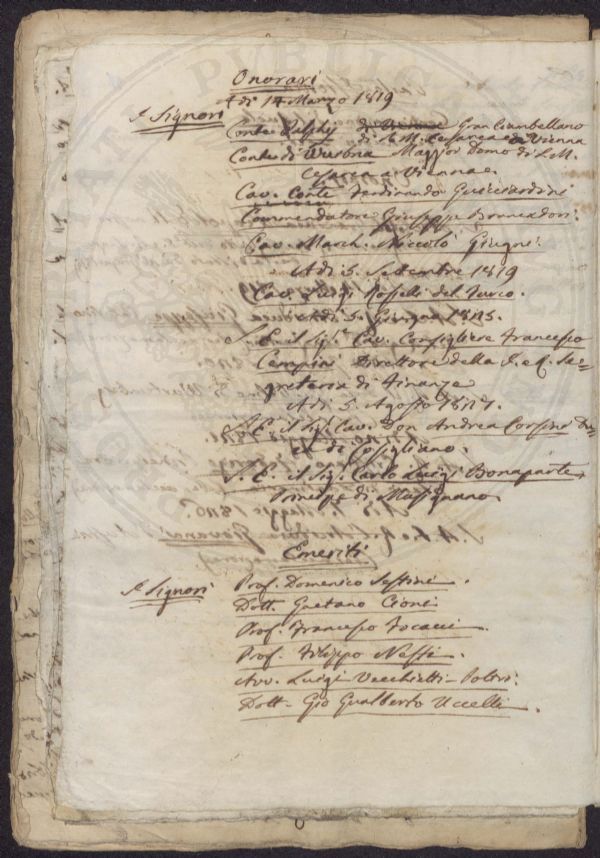 Onorari
A dì 14 Marzo 1819
I Signori
Conte Palffy Gran Ciambellano
di S. M. Cesarea a Vienna
Conte di Wurbna Maggior Domo di S. M.
Cesarea a Vienna
Cav. Conte Ferdinando Guicciardini
Commendatore Giuseppe
Cav. March. Niccolò Giugni
A dì 5. Settembre 1819
Cav. Luigi Rosselli del Turco.
A dì 5. Giugno
S. E. il Sig.r Cav. Consigliere Francesco
Cempini Direttore della I. e R. Se=
greteria di Finanze
A dì 5. Agosto
S. E. il Sig. Cav. Don Andrea Corsini Du=
ca di Casigliano.
S. E. il Sig. Carlo Luigi Bonaparte
Principe di Musignano
Emeriti
I Signori
Prof. Domenico Sestini.
Dott. Gaetano Cioni
Prof. Francesco
Prof. Filippo Nesti.
Avv. Luigi Vecchietti-Poltri.
Dott. Gio Gualberto Uccelli.